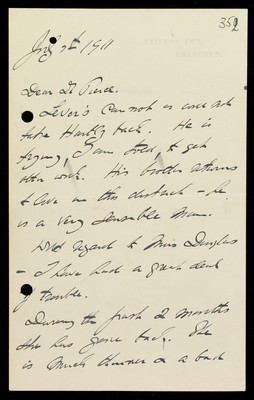 352
July 7th 1911
Dear Dr Pierce.
Lever's can not or will not
take Hartley back. He is
trying, I am told, to get
other work. His brother returns
to live in this district - he
is a very sensible man.
With regard to Miss Douglas
- I have had a great deal
of trouble.
During the past 2 months
she has gone back. She
is much thinner & a bad